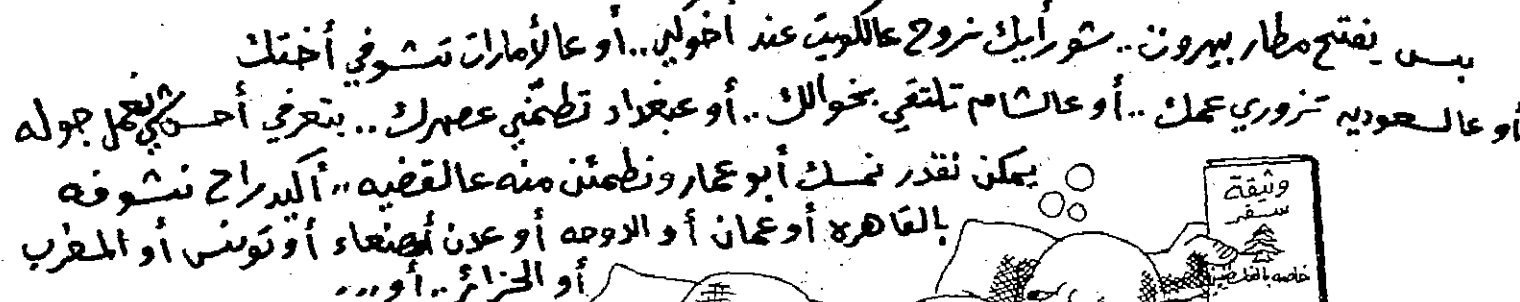 بس يفتح مطار بيروت .. شو رأيك نروح عالكويت عند أخوكي .. أو عالأمارات تشوفي أختك
أو عالسعوديه تزوري عمك .. أو عالشام تلتقي بخوالك .. أو عبغداد تطمّني عصهرك .. بتعرفي أحسن شي نعمل جوله
يمكن نقدر نمسك أبو عمار ونطمئن منه عالقضيه .. أكيد راح نشوفه
بالقاهره أو عمان أو الدوحه أو عدن أو صنعاء أو تونس أو المغرب
أو الجزائر .. أو ...
وثيقة
سفر
خاصه بالفلسطينيين